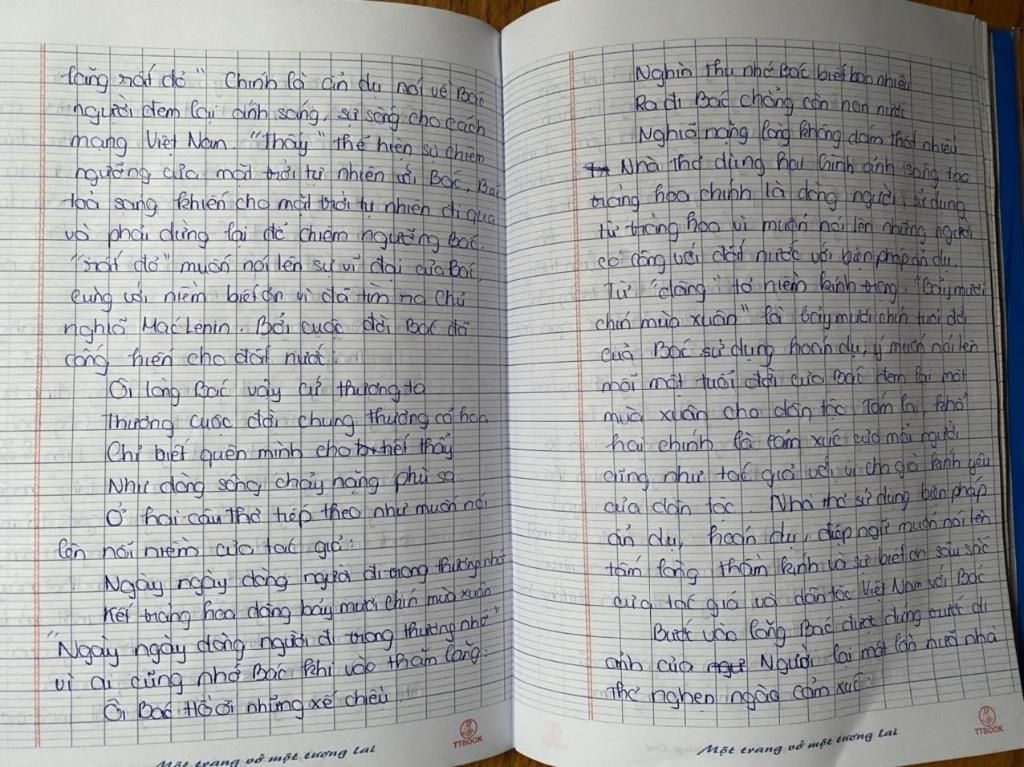 lăng rất đỏ" Chính là ẩn dụ nói về Bác
người đem lại ánh sáng, sự sống cho cách
mạng Việt Nam. "Thấy" thể hiện sự chiêm
ngưỡng của mặt trời tự nhiên với Bác, Bác
tỏa sáng khiến cho mặt trời tự nhiên đi qua
và phải dừng lại để chiêm ngưỡng Bác.
"rất đỏ" muốn nói lên sự vĩ đại của Bác,
cùng với niềm biết ơn vì đã tìm ra Chủ
nghĩa Mac Lenin. Bởi cuộc đời Bác đã
cống hiến cho đất nước
Ôi lòng Bác vậy cứ thương ta
Thương cuộc đời chung thương cỏ hoa
Chỉ biết quên mình cho hết thẩy
Như dòng sông chảy nặng phù sa
Ở hai câu thơ tiếp theo như muốn nói
lên nỗi niềm của tác giả:
Ngày ngày dòng người đi trong thương nhớ
Kết tràng hoa dâng bảy mươi chín mùa xuân
"Ngày ngày dòng người đi trong thương nhớ"
vì ai cũng nhớ Bác khi vào thăm lăng.
Ôi Bác Hồ ơi những xế chiều
Một trang vở một tương lai
TTBOOK
Nghìn thu nhớ Bác biết bao nhiêu
Ra đi Bác chẳng còn non nước
Nghĩa nặng lòng không dám thở nhiều
Nhà thơ dùng hai hình ảnh sóng tạo
tràng hoa chính là dòng người, sử dụng
từ tràng hoa vì muốn nói lên những người
có công với đất nước với biện pháp ẩn dụ.
Từ "dâng" tỏ niềm kính trọng. "Bảy mươi
chín mùa xuân" là bảy mươi chín tuổi đời
của Bác sử dụng hoán dụ, ý muốn nói lên
mỗi một tuổi đời của Bác đem lại một
mùa xuân cho dân tộc. Tóm lại, khổ
hai chính là cảm xúc của mỗi người
cũng như tác giả với vị cha già kính yêu
của dân tộc. Nhà thơ sử dụng biện pháp
ẩn dụ, hoán dụ, điệp ngữ muốn nói lên
tấm lòng thành kính và sự biết ơn sâu sắc
của tác giả và dân tộc Việt Nam với Bác
Bước vào lăng Bác được đứng trước di
ảnh của Người lại một lần nữa nhà
thơ nghẹn ngào cảm xúc:
Một trang vở một tương lai
TTBOOK